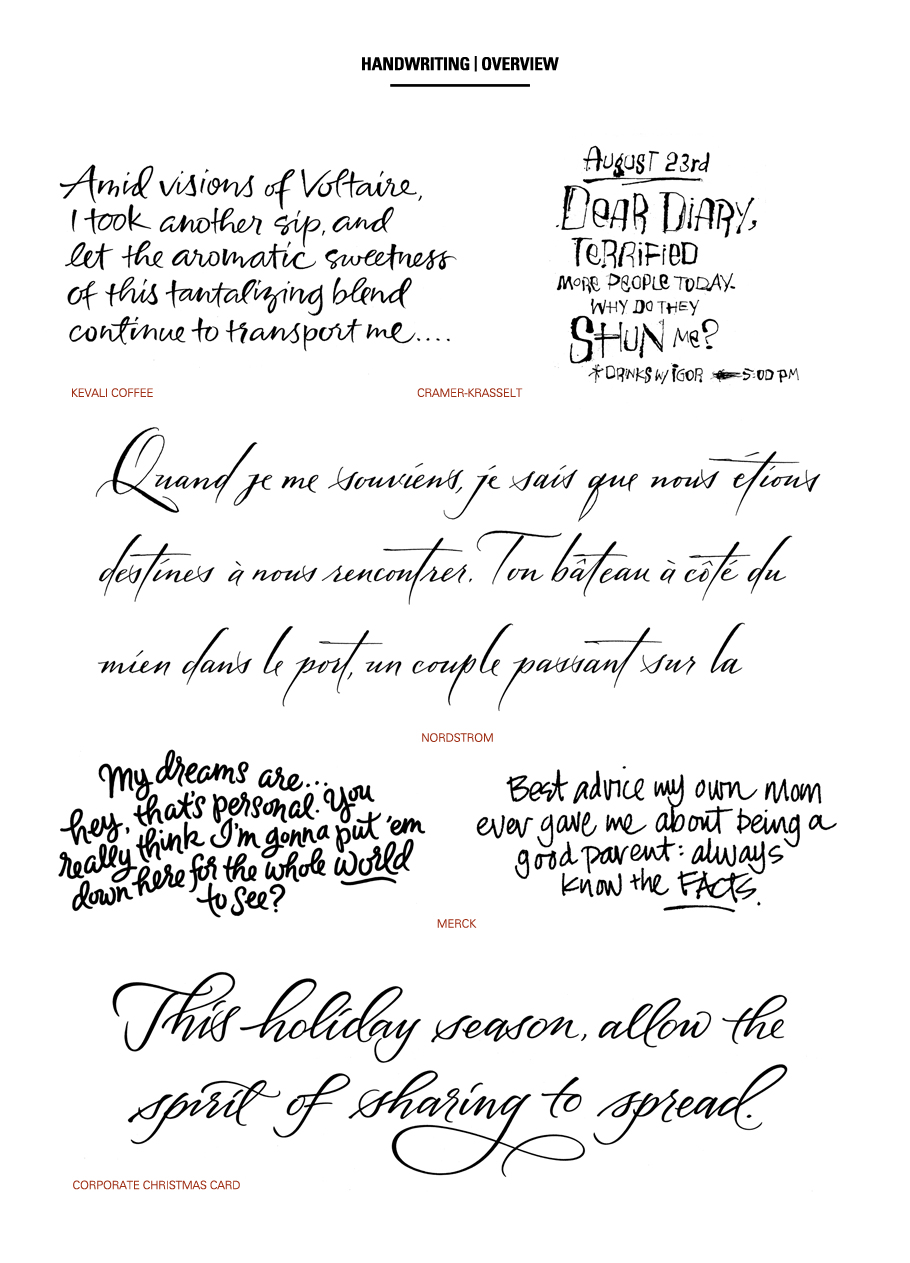 HANDWRITING | OVERVIEW
Amid visions of Voltaire,
I took another sip, and
let the aromatic sweetness
of this tantalizing blend
continue to transport me....
KEVALI COFFEE
August 23rd
DEAR DIARY,
TERRIFIED
MORE PEOPLE TODAY.
WHY DO THEY
SHUN Me?
*DRINKS W/ IGOR 5:00 PM
CRAMER-KRASSELT
Quand je me souviens, je sais que nous étions
destines à nous rencontrer. Ton bâteau à côté du
mien dans le port, un couple passant sur la
NORDSTROM
My dreams are...
hey, that's personal. You
really think I'm gonna put 'em
down here for the whole world
to see?
Best advice my own mom
ever gave me about being a
good parent: always
know the FACTS.
MERCK
This holiday season, allow the
spirit of sharing to spread.
CORPORATE CHRISTMAS CARD